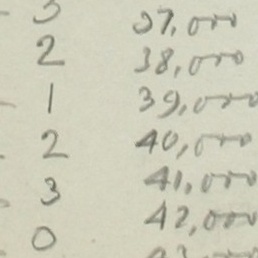 3 37,000
2 38,000
1 39,000
2 40,000
3 41,000
0 42,000